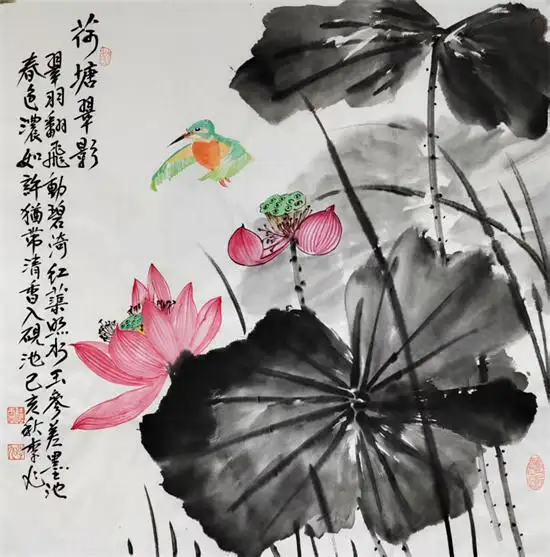 荷塘翠影
翠羽翻飛動碧漪红蕖照水玉參差墨池
春色濃如許猶带清香入硯池己亥秋李